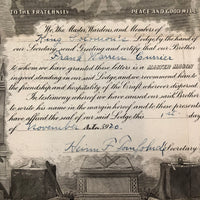 TO THE FRATERNITY PEACE AND GOOD WILL
We, the Master, Wardens, and Members of
King Solomon's Lodge by the hand of
our Secretary, send Greeting and certify that our Brother
Frank Warren Currier
to whom we have granted these letters is a MASTER MASON
in good standing in our said Lodge, and we recommend him to
the friendship and hospitality of the Craft wherever dispersed
In testimony whereof we have caused our said Brother
to write his name on the margin hereof and to these presents
have affixed the seal of our said Lodge this 1st day
of November A.D. 1920.
Secretary